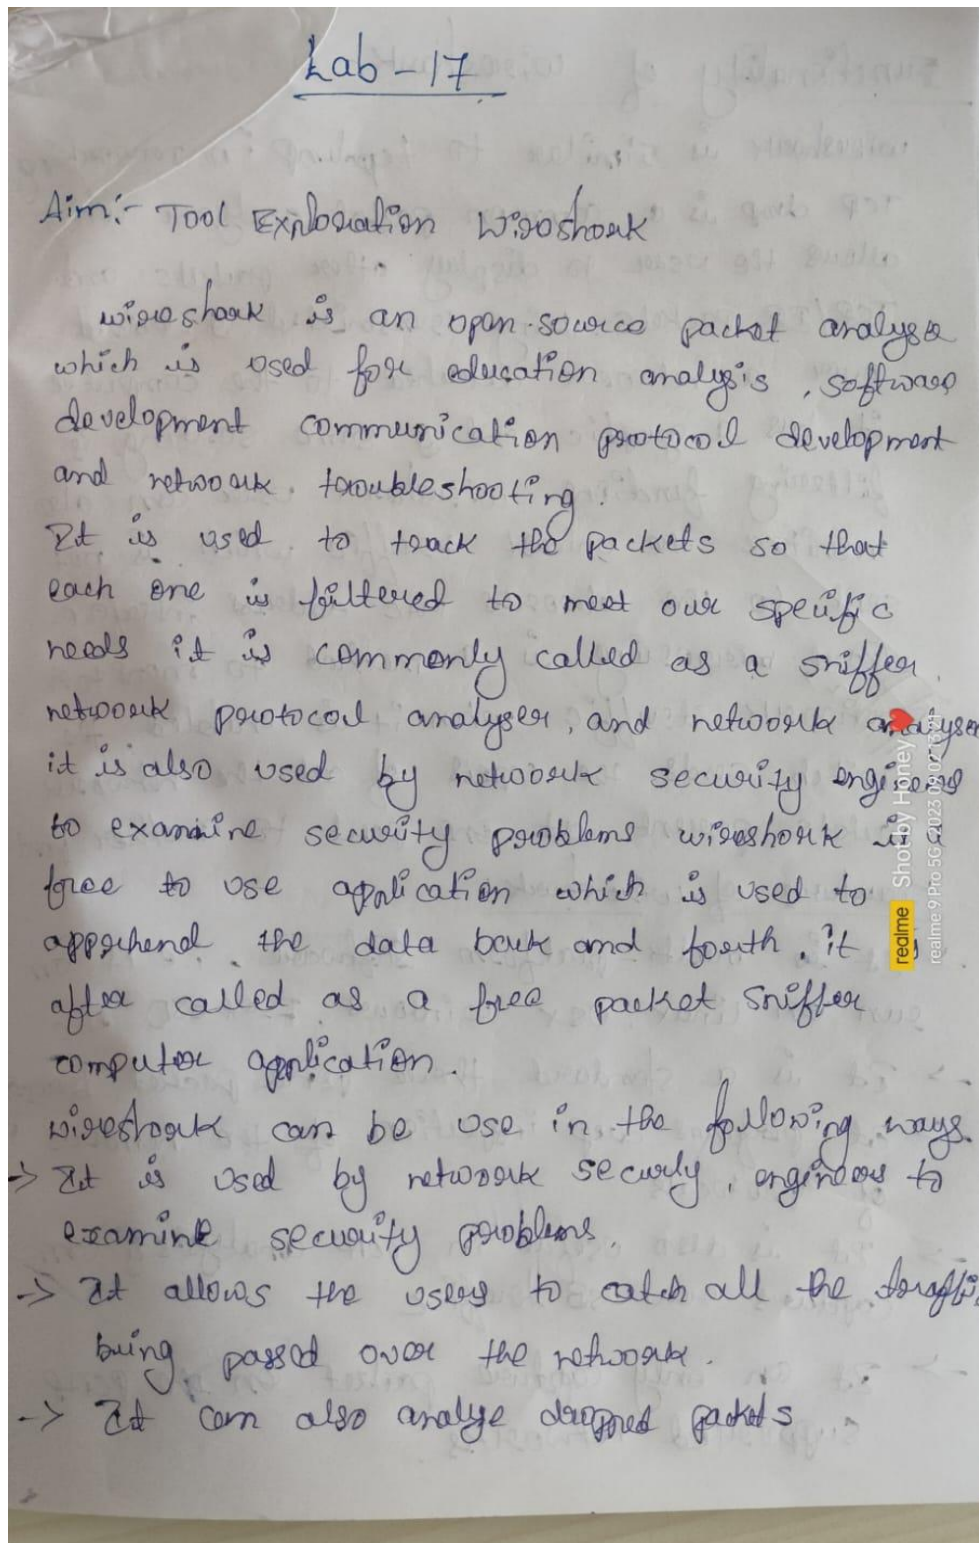 Lab - 17
Aim:- Tool Exploration Wireshark
wireshark is an open-source packet analyse
which is used for education analysis, software
development communication protocol development
and network troubleshooting.
It is used to track the packets so that
each one is filtered to meet our specific
needs it is commonly called as a sniffer.
network protocol analyser, and network analyser
it is also used by network security engineers
to examine security problems wireshark is a
free to use application which is used to
apprehend the data back and forth, it is
after called as a free packet sniffer
computer application.
wireshark can be use in the following ways.
-> It is used by network securly, engineers to
examine security problems.
-> It allows the users to catch all the traffic
being passed over the network.
-> It can also analye dropped packets
realme Shot by Honey ❤️
realme 9 Pro 5G